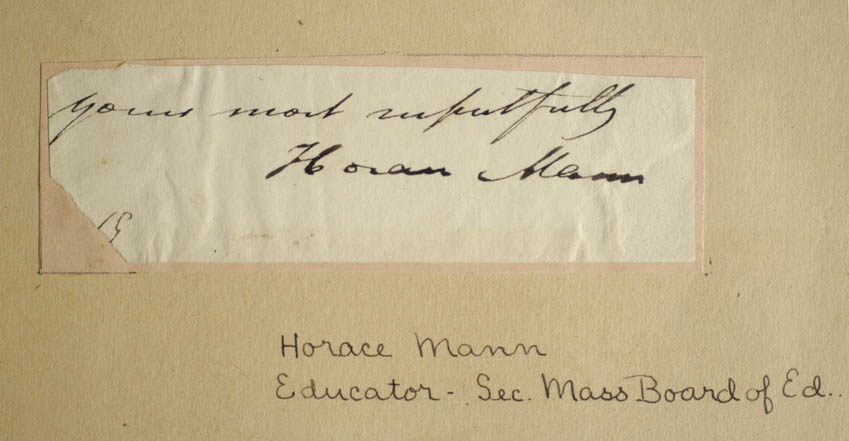 yours most respectfully
Horace Mann
Horace Mann
Educator - Sec. Mass Board of Ed..